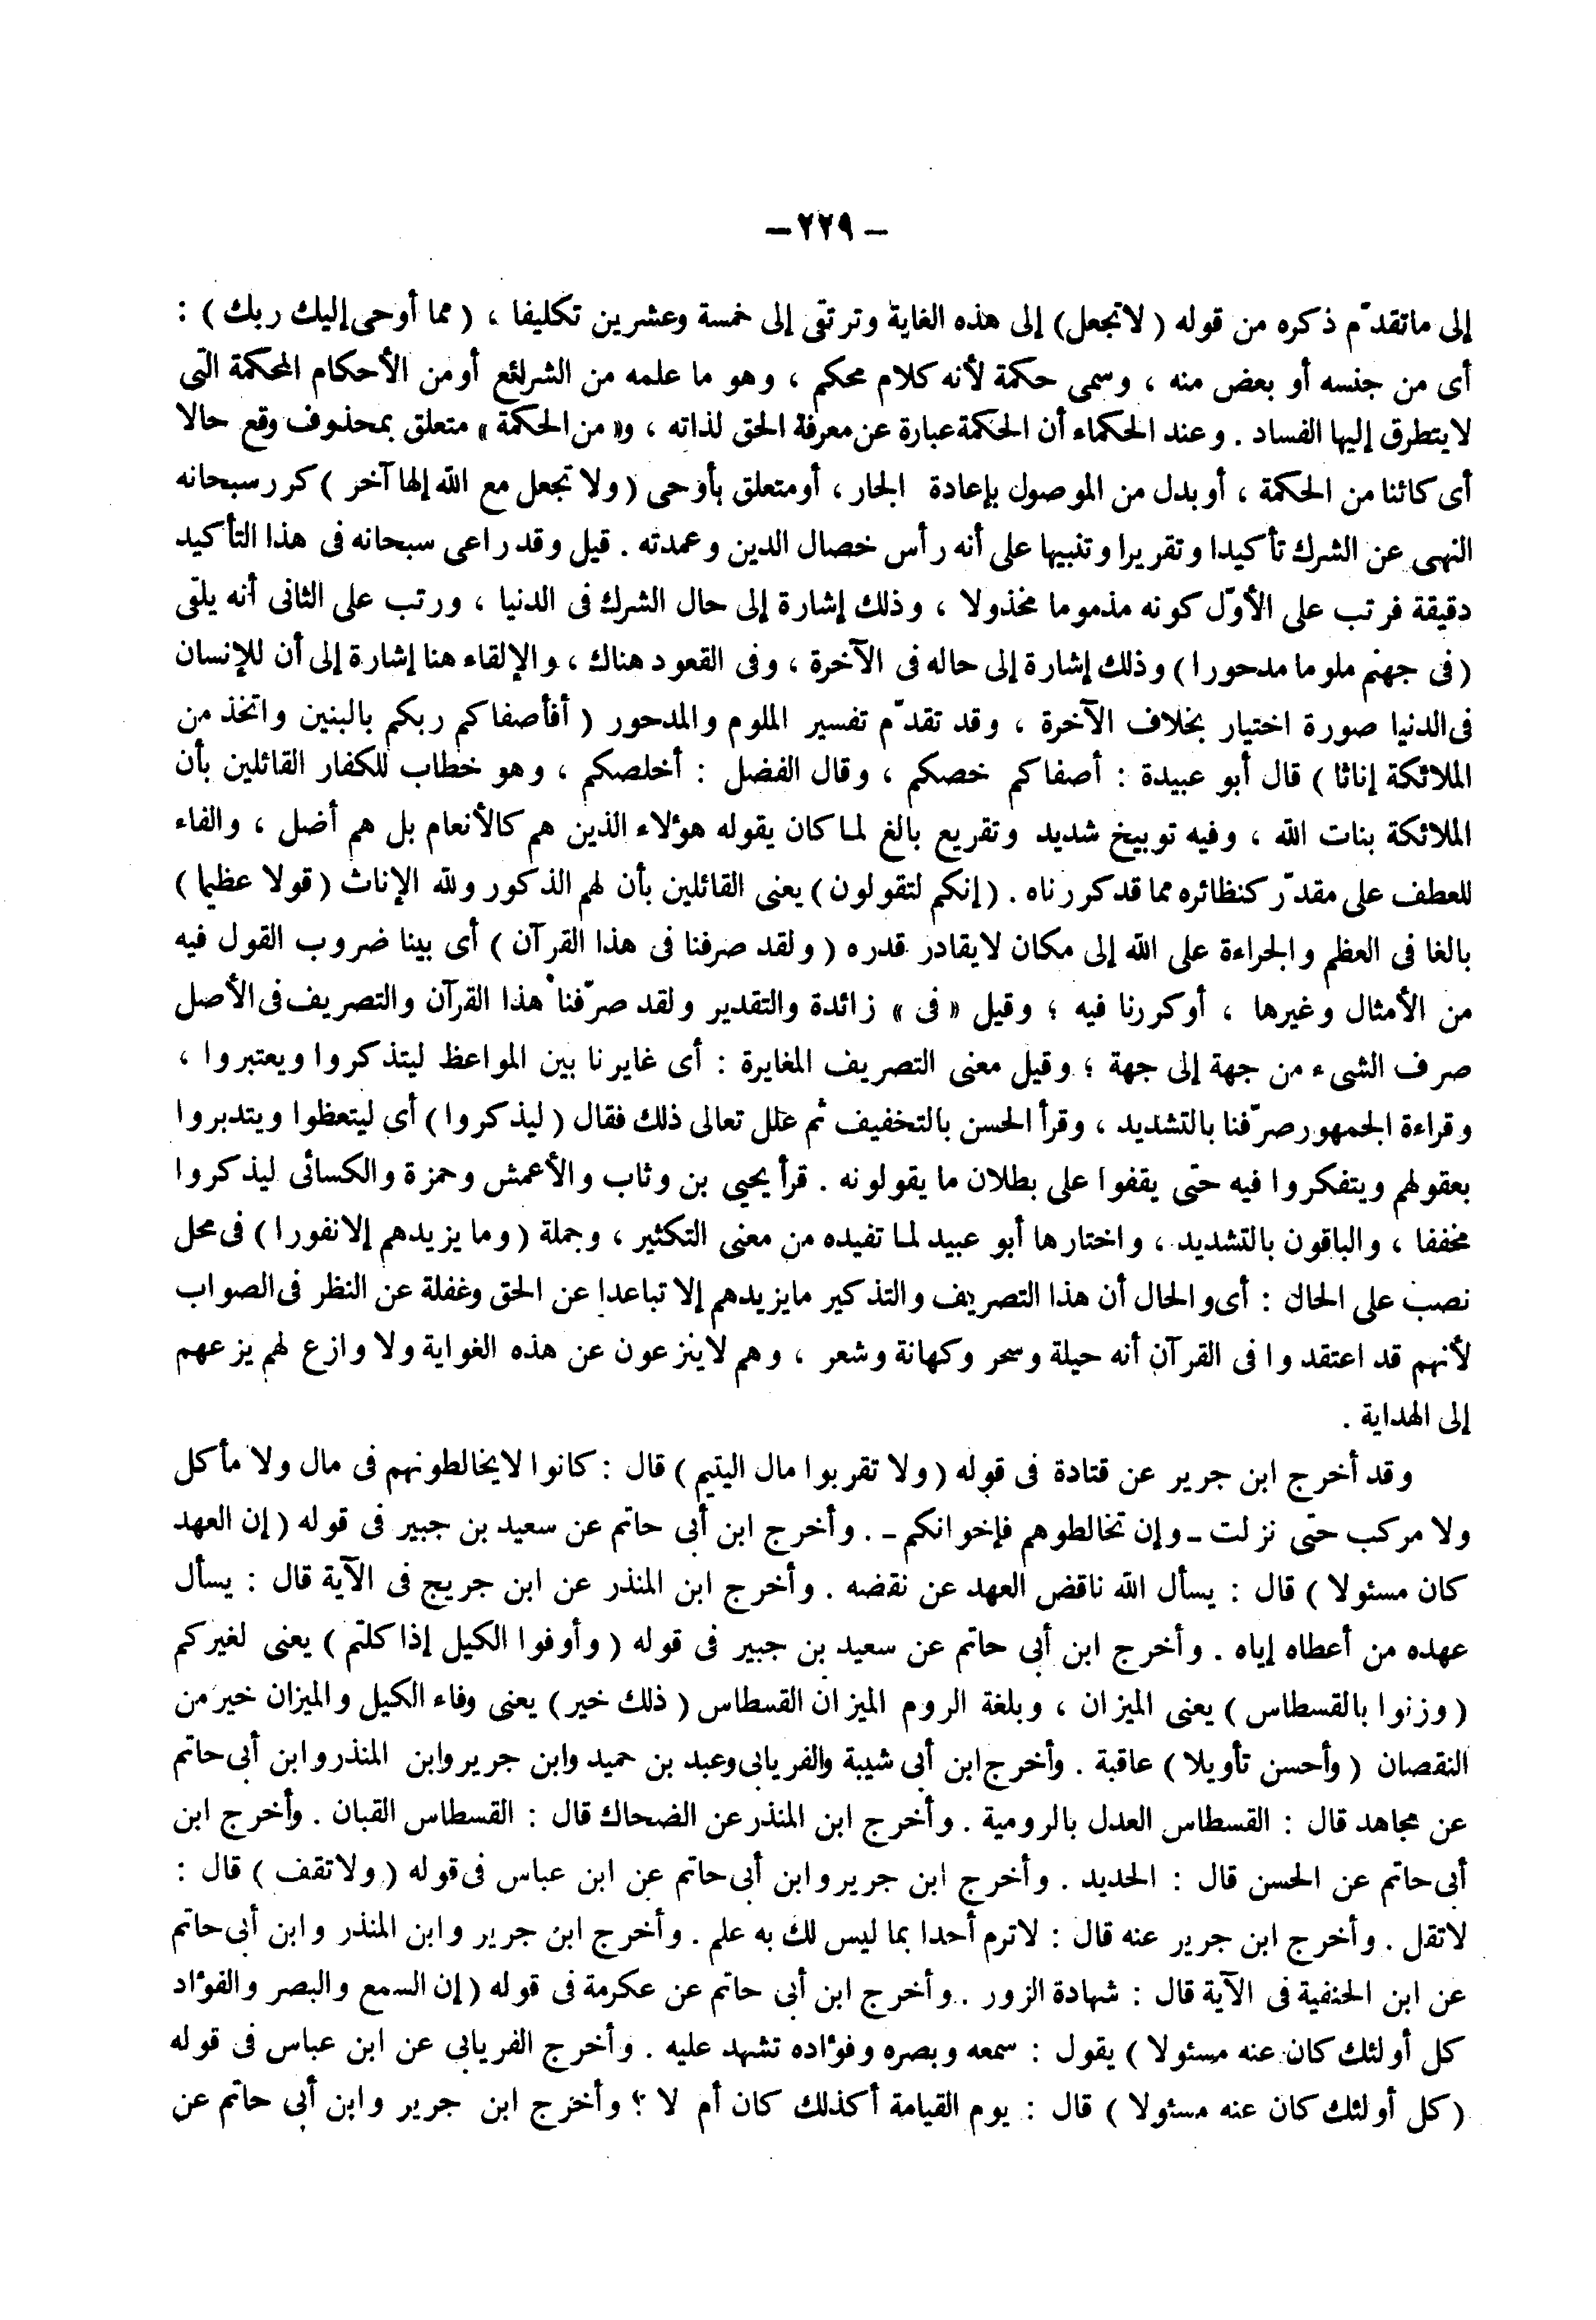 – ٢٢٩ –
إلى ماتقدّم ذكره من قوله ( لاتجعل) إلى هذه الغاية وترتقى إلى خمسة وعشرين تكليفا ، ( مما أوحى إليك ربك ) :
أى من جنسه أو بعض منه ، وسمى حكمة لأنه كلام محكم ، وهو ما علمه من الشرائع أومن الأحكام المحكمة التى
لايتطرق إليها الفساد . وعند الحكماء أن الحكمة عبارة عن معرفة الحق لذاته ، و« من الحكمة » متعلق بمحذوف وقع حالا
أى كائنا من الحكمة ، أوبدل من الموصول بإعادة الجار ، أومتعلق بأوحى ( ولا تجعل مع الله إلها آخر ) كرر سبحانه
النهى عن الشرك تأكيدا وتقريرا وتنبيها على أنه رأس خصال الدين وعمدته . قيل وقد راعى سبحانه فى هذا التأكيد
دقيقة فرتب على الأوّل كونه مذموما مخذولا ، وذلك إشارة إلى حال الشرك فى الدنيا ، ورتب على الثانى أنه يلقى
( فى جهنم ملوما مدحورا ) وذلك إشارة إلى حاله فى الآخرة ، وفى القعود هناك ، والإلقاء هنا إشارة إلى أن للإنسان
فى الدنيا صورة اختيار بخلاف الآخرة ، وقد تقدّم تفسير الملوم والمدحور ( أفأصفاكم ربكم بالبنين واتخذ من
الملائكة إناثا ) قال أبو عبيدة : أصفاكم خصكم ، وقال الفضل : أخلصكم ، وهو خطاب للكفار القائلين بأن
الملائكة بنات الله ، وفيه توبيخ شديد وتقريع بالغ لما كان يقوله هؤلاء الذين هم كالأنعام بل هم أضل ، والفاء
للعطف على مقدّر كنظائره مما قد كررناه . ( إنكم لتقولون ) يعنى القائلين بأن لهم الذكور ولله الإناث ( قولا عظيما )
بالغا فى العظم والجراءة على الله إلى مكان لايقادر قدره ( ولقد صرفنا فى هذا القرآن ) أى بينا ضروب القول فيه
من الأمثال وغيرها ، أوكررنا فيه ؛ وقيل « فى » زائدة والتقدير ولقد صرّفنا هذا القرآن والتصريف فى الأصل
صرف الشىء من جهة إلى جهة ؛ وقيل معنى التصريف المغايرة : أى غايرنا بين المواعظ ليتذكروا ويعتبروا ،
وقراءة الجمهور صرّفنا بالتشديد ، وقرأ الحسن بالتخفيف ثم علل تعالى ذلك فقال ( ليذكروا ) أى ليتعظوا ويتدبروا
بعقولهم ويتفكروا فيه حتى يقفوا على بطلان ما يقولونه . قرأ يحيى بن وثاب والأعمش وحمزة والكسائى ليذكروا
مخففا ، والباقون بالتشديد ، واختارها أبو عبيد لما تفيده من معنى التكثير ، وجملة ( وما يزيدهم إلا نفورا ) فى محل
نصب على الحال : أى والحال أن هذا التصريف والتذكير مايزيدهم إلا تباعدا عن الحق وغفلة عن النظر فى الصواب
لأنهم قد اعتقدوا فى القرآن أنه حيلة وسحر وكهانة وشعر ، وهم لاينزعون عن هذه الغواية ولا وازع لهم يزعهم
إلى الهداية .
وقد أخرج ابن جرير عن قتادة فى قوله ( ولا تقربوا مال اليتيم ) قال : كانوا لايخالطونهم فى مال ولا مأكل
ولا مركب حتى نزلت ـ وإن تخالطوهم فإخوانكم ـ . وأخرج ابن أبى حاتم عن سعيد بن جبير فى قوله ( إن العهد
كان مسئولا ) قال : يسأل الله ناقض العهد عن نقضه . وأخرج ابن المنذر عن ابن جريج فى الآية قال : يسأل
عهده من أعطاه إياه . وأخرج ابن أبى حاتم عن سعيد بن جبير فى قوله ( وأوفوا الكيل إذا كلتم ) يعنى لغيركم
( وزنوا بالقسطاس ) يعنى الميزان ، وبلغة الروم الميزان القسطاس ( ذلك خير ) يعنى وفاء الكيل والميزان خير من
النقصان ( وأحسن تأويلا ) عاقبة . وأخرج ابن أبى شيبة والفريابى وعبد بن حميد وابن جرير وابن المنذر وابن أبى حاتم
عن مجاهد قال : القسطاس العدل بالرومية . وأخرج ابن المنذر عن الضحاك قال : القسطاس القبان . وأخرج ابن
أبى حاتم عن الحسن قال : الحديد . وأخرج ابن جرير وابن أبى حاتم عن ابن عباس فى قوله ( ولاتقف ) قال :
لاتقل . وأخرج ابن جرير عنه قال : لاترم أحدا بما ليس لك به علم . وأخرج ابن جرير وابن المنذر وابن أبى حاتم
عن ابن الحنفية فى الآية قال : شهادة الزور . وأخرج ابن أبى حاتم عن عكرمة فى قوله ( إن السمع والبصر والفؤاد
كل أولئك كان عنه مسئولا ) يقول : سمعه وبصره وفؤاده تشهد عليه . وأخرج الفريابى عن ابن عباس فى قوله
( كل أولئك كان عنه مسئولا ) قال : يوم القيامة أكذلك كان أم لا ؟ وأخرج ابن جرير وابن أبى حاتم عن